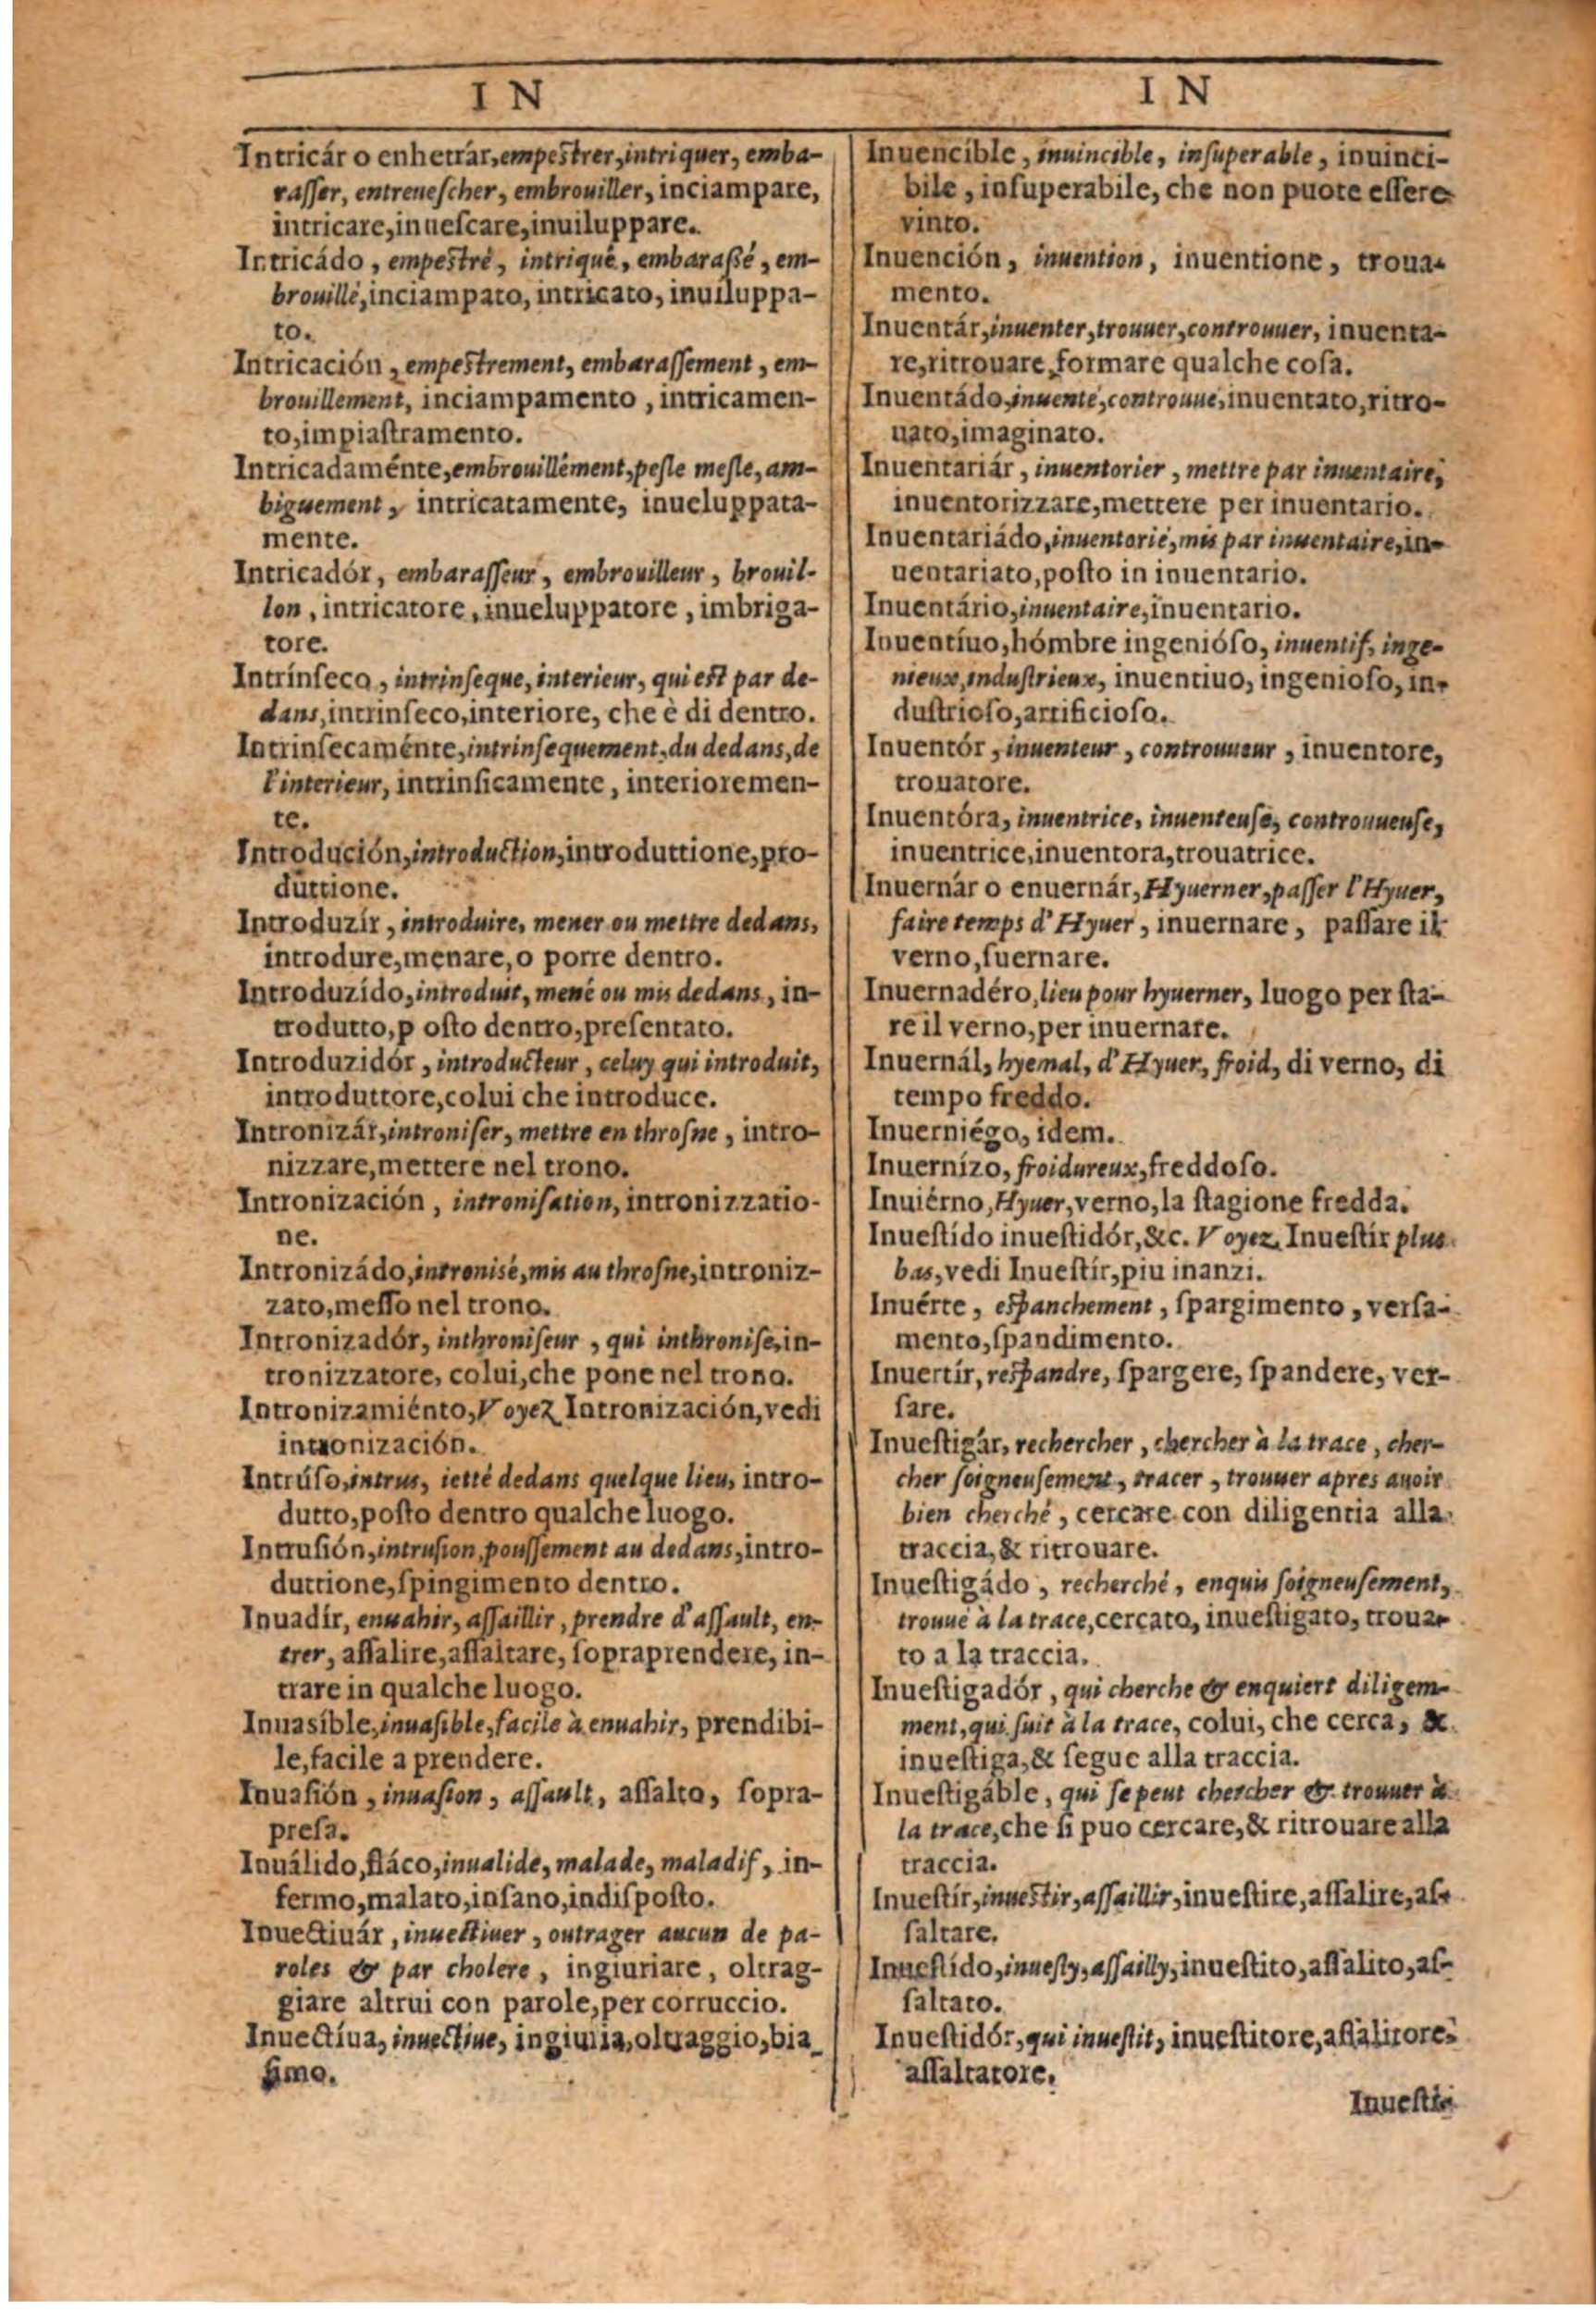 I N
Intricár o enhetrár, empestrer, intriquer, emba-
rasser, entreuescher, embrouiller, inciampare,
intricare, inuescare, inuiluppare.
Intricádo, empestré, intriqué, embarassé, em-
brouillé, inciampato, intricato, inuiluppa-
to.
Intricación, empestrement, embarassement, em-
brouillement, inciampamento, intricamen-
to, impiastramento.
Intricadaménte, embrouillément, pesle mesle, am-
biguement, intricatamente, inueluppata-
mente.
Intricadór, embarasseur, embrouilleur, brouil-
lon, intricatore, inueluppatore, imbriga-
tore.
Intrínseco, intrinseque, interieur, qui est par de-
dans, intrinseco, interiore, che è di dentro.
Intrinsecaménte, intrinsequement, du dedans, de
l'interieur, intrinsicamente, interioremen-
te.
Introdución, introduction, introduttione, pro-
duttione.
Introduzír, introduire, mener ou mettre dedans,
introdure, menare, o porre dentro.
Introduzído, introduit, mené ou mis dedans, in-
trodutto, p osto dentro, presentato.
Introduzidór, introducteur, celuy qui introduit,
introduttore, colui che introduce.
Intronizár, introniser, mettre en throsne, intro-
nizzare, mettere nel trono.
Intronización, intronisation, intronizzatio-
ne.
Intronizádo, intronisé, mis au throsne, introniz-
zato, messo nel trono.
Intronizadór, inthroniseur, qui inthronise, in-
tronizzatore, colui, che pone nel trono.
Intronizamiénto, Voyez Intronización, vedi
intronización.
Intrúso, intrus, ietté dedans quelque lieu, intro-
dutto, posto dentro qualche luogo.
Intrusión, intrusion, poussement au dedans, intro-
duttione, spingimento dentro.
Inuadír, enuahir, assaillir, prendre d'assault, en-
trer, assalire, assaltare, sopraprendere, in-
trare in qualche luogo.
Inuasíble, inuasible, facile à enuahir, prendibi-
le, facile a prendere.
Inuasión, inuasion, assault, assalto, sopra-
presa.
Inuálido, fláco, inualide, malade, maladif, in-
fermo, malato, insano, indisposto.
Inuectiuár, inuectiuer, outrager aucun de pa-
roles & par cholere, ingiuriare, oltrag-
giare altrui con parole, per corruccio.
Inuectíua, inuectiue, ingiuria, oltraggio, bia_
simo.
I N
Inuencíble, inuincible, insuperable, inuinci-
bile, insuperabile, che non puote essere
vinto.
Inuención, inuention, inuentione, troua-
mento.
Inuentár, inuenter, trouuer, controuuer, inuenta-
re, ritrouare, formare qualche cosa.
Inuentádo, inuenté, controuué, inuentato, ritro-
uato, imaginato.
Inuentariár, inuentorier, mettre par inuentaire,
inuentorizzare, mettere per inuentario.
Inuentariádo, inuentorié, mis par inuentaire, in-
uentariato, posto in inuentario.
Inuentário, inuentaire, inuentario.
Inuentíuo, hómbre ingenióso, inuentif, inge-
nieux, industrieux, inuentiuo, ingenioso, in-
dustrioso, artificioso.
Inuentór, inuenteur, controuueur, inuentore,
trouatore.
Inuentóra, inuentrice, inuenteuse, controuueuse,
inuentrice, inuentora, trouatrice.
Inuernár o enuernár, Hyuerner, passer l'Hyuer,
faire temps d'Hyuer, inuernare, passare il
verno, suernare.
Inuernadéro, lieu pour hyuerner, luogo per sta-
re il verno, per inuernare.
Inuernál, hyemal, d'Hyuer, froid, di verno, di
tempo freddo.
Inuerniégo, idem.
Inuernízo, froidureux, freddoso.
Inuiérno, Hyuer, verno, la stagione fredda.
Inuestído inuestidór, &c. Voyez Inuestír plus
bas, vedi Inuestír, piu inanzi.
Inuérte, espanchement, spargimento, versa-
mento, spandimento.
Inuertír, respandre, spargere, spandere, ver-
sare.
Inuestigár, rechercher, chercher à la trace, cher-
cher soigneusement, tracer, trouuer apres auoir
bien cherché, cercare con diligentia alla
traccia, & ritrouare.
Inuestigádo, recherché, enquis soigneusement,
trouué à la trace, cercato, inuestigato, troua-
to a la traccia.
Inuestigadór, qui cherche & enquiert diligem-
ment, qui suit à la trace, colui, che cerca, &
inuestiga, & segue alla traccia.
Inuestigáble, qui se peut chercher & trouuer à
la trace, che si puo cercare, & ritrouare alla
traccia.
Inuestír, inuestir, assaillir, inuestire, assalire, as-
saltare.
Inuestído, inuesty, assailly, inuestito, assalito, as-
saltato.
Inuestidór, qui inuestit, inuestitore, assalitore,
assaltatore.
Inuesti-